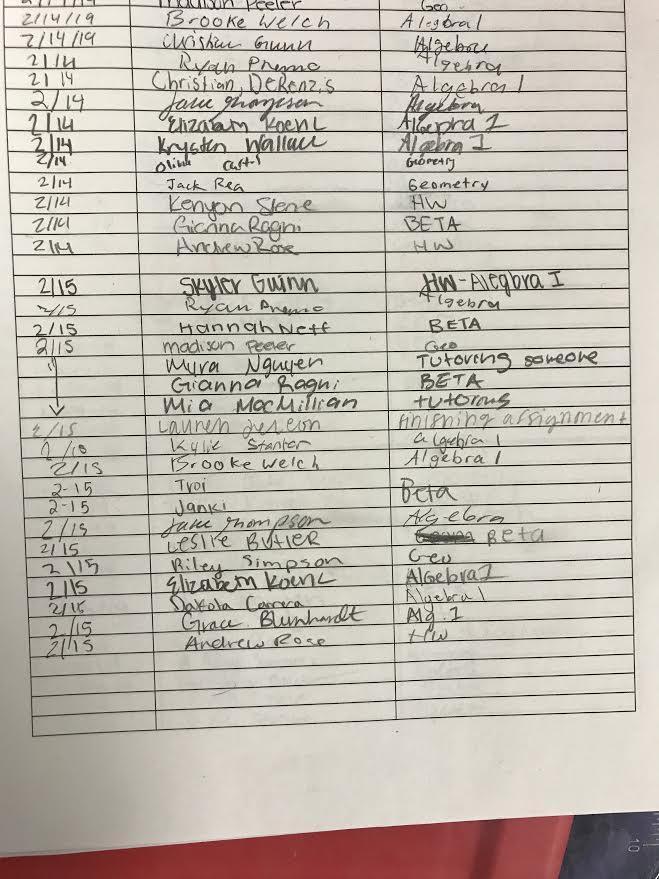 Madison Peeler Geo
2/14/19 Brooke Welch Algebra 1
2/14/19 Christian Gunn Algebra
2/14 Ryan Premo Algebra
2/14 Christian DeRenzis Algebra 1
2/14 Jake Thompson Algebra
2/14 Elizabeth Koenl Algebra 1
2/14 Krysten Wallace Algebra 1
2/14 Olivia Geometry
2/14 Jack Rea Geometry
2/14 Kenyon Slene HW
2/14 Gianna Ragni BETA
2/14 Andrew Rose HW
2/15 Skyler Guinn HW-Alegbra I
2/15 Ryan Premo Algebra
2/15 Hannah Neff BETA
2/15 madison Peeler Geo
Myra Nguyen Tutoring someone
Gianna Ragni BETA
Mia MacMillian tutoring
2/15 Lauren finishing assignment
Kylie Stanter algebra 1
2/15 Brooke Welch Algebra 1
2-15 Troi Beta
2-15 Janki
2/15 Jake Thompson Algebra
2/15 LESLIE BUTLER Beta
2/15 Riley Simpson Geo
2/15 Elizabeth Koenl Algebra 1
Dakota Carrera Algebra 1
2/15 Grace Blunhardt Alg. 1
2/15 Andrew Rose HW
10